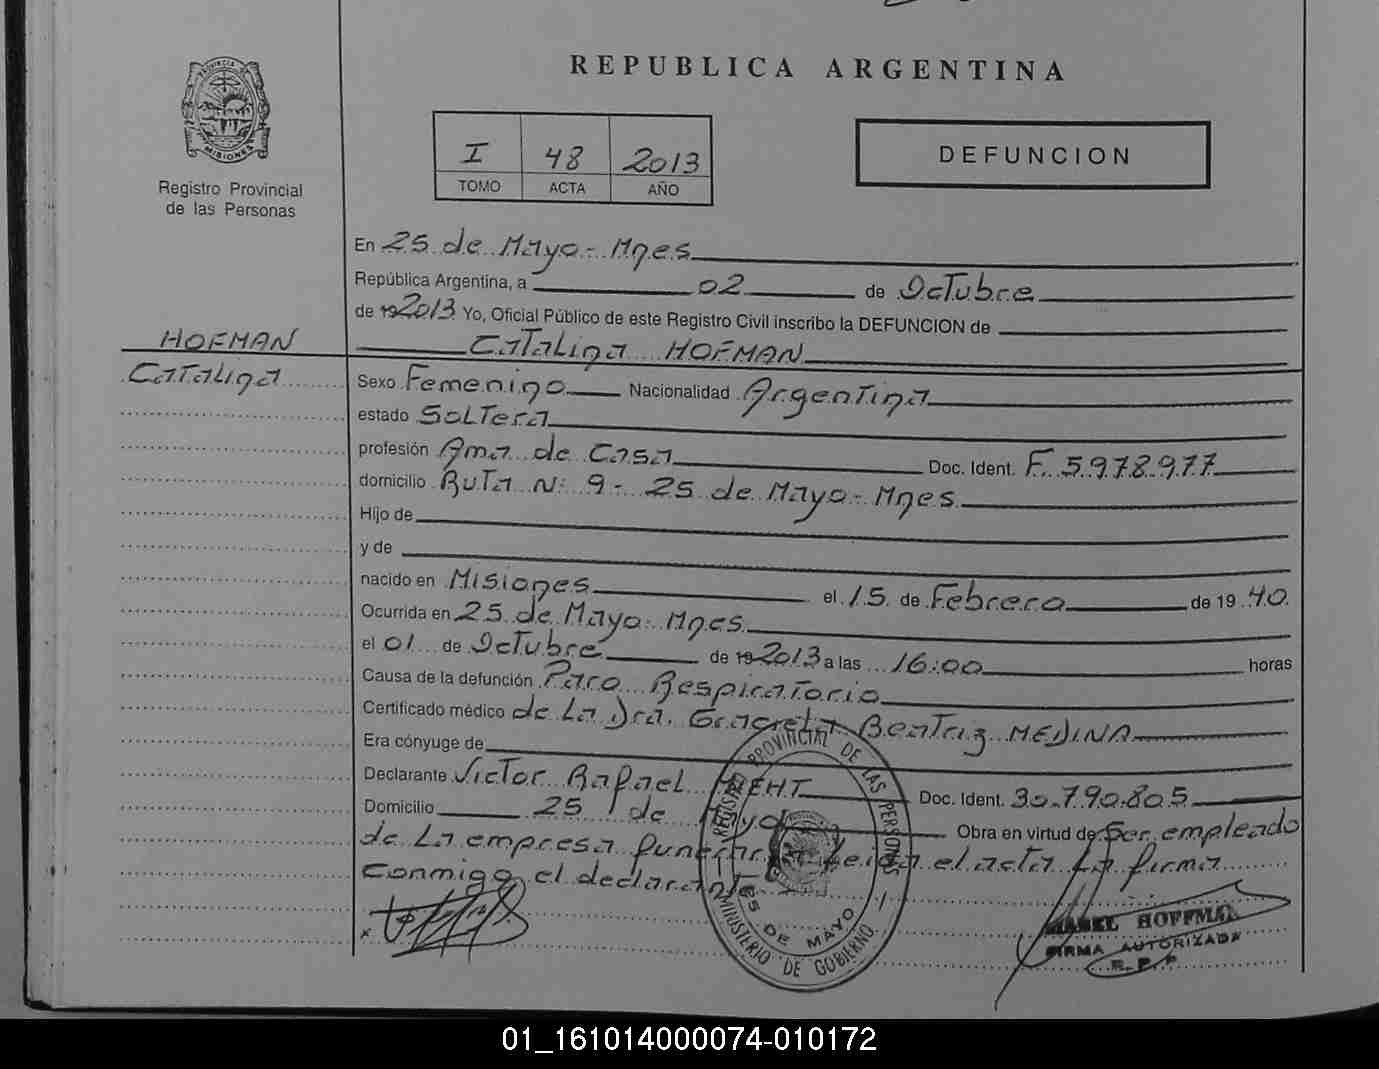 REPUBLICA ARGENTINA
PROVINCIA DE
MISIONES
Registro Provincial
de las Personas
I 48 2013
TOMO ACTA AÑO
DEFUNCION
En 25 de Mayo - Mnes
República Argentina, a 02 de Octubre
de 19 2013 Yo, Oficial Público de este Registro Civil inscribo la DEFUNCION de
HOFMAN
Catalina HOFMAN
Catalina
Sexo Femenino Nacionalidad Argentina
estado Soltera
profesión Ama de Casa Doc. Ident. F. 5.978.977
domicilio Ruta N: 9 - 25 de Mayo - Mnes
Hijo de
y de
nacido en Misiones el 15 de Febrero de 19 40
Ocurrida en 25 de Mayo - Mnes
el 01 de Octubre de 19 2013 a las 16:00 horas
Causa de la defunción Paro Respiratorio
Certificado médico de La Dra. Graciela Beatriz MEDINA
Era cónyuge de
Declarante Victor Rafael Doc. Ident. 30.790.805
Domicilio 25 de Mayo Obra en virtud de Ser empleado
de La empresa funeraria Leida el acta La firma
Conmigo el declarante
REGISTRO PROVINCIAL DE LAS PERSONAS
25 DE MAYO
MINISTERIO DE GOBIERNO
MABEL HOFFMAN
FIRMA AUTORIZADA
R. P. P.
01_161014000074-010172